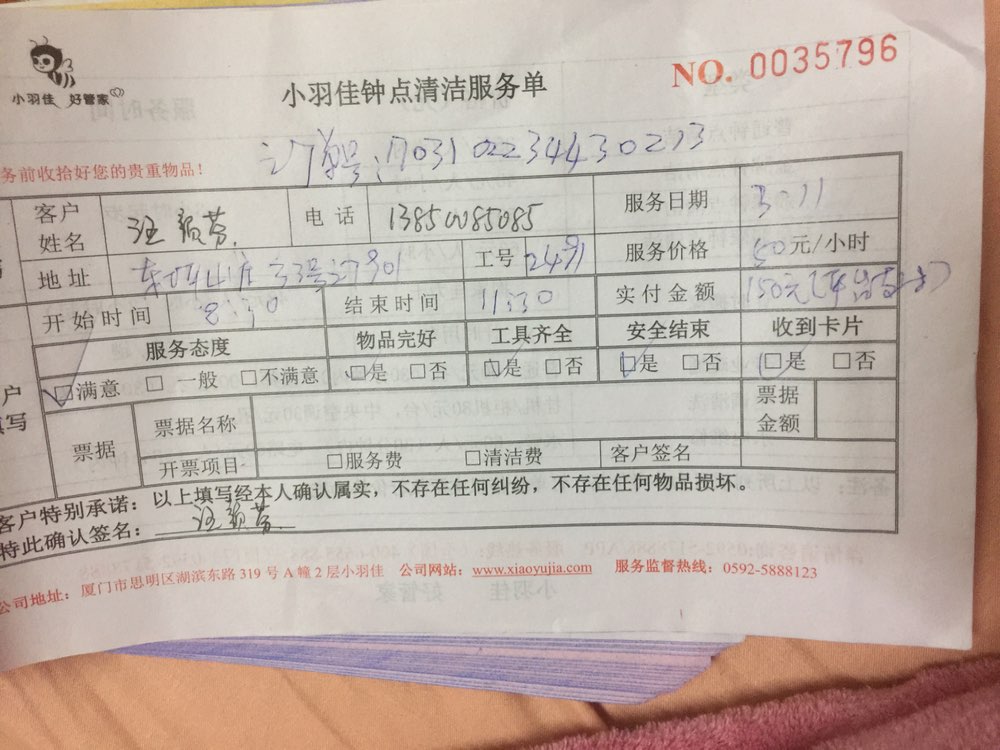 小羽佳 好管家
小羽佳钟点清洁服务单
NO. 0035796
订单号:1703102234430273
务前收拾好您的贵重物品!
客户姓名 汪 电话 13850085085 服务日期 3.11
地址 工号 服务价格 50元/小时
开始时间 8:30 结束时间 11:30 实付金额 150元(
服务态度 物品完好 工具齐全 安全结束 收到卡片
户 □满意 □一般 □不满意 □是 □否 □是 □否 □是 □否 □是 □否
填写 票据 票据名称 票据金额
开票项目 □服务费 □清洁费 客户签名
客户特别承诺:以上填写经本人确认属实,不存在任何纠纷,不存在任何物品损坏。
特此确认签名: 汪
公司地址:厦门市思明区湖滨东路 319 号 A 幢 2 层小羽佳 公司网站:www.xiaoyujia.com 服务监督热线:0592-5888123